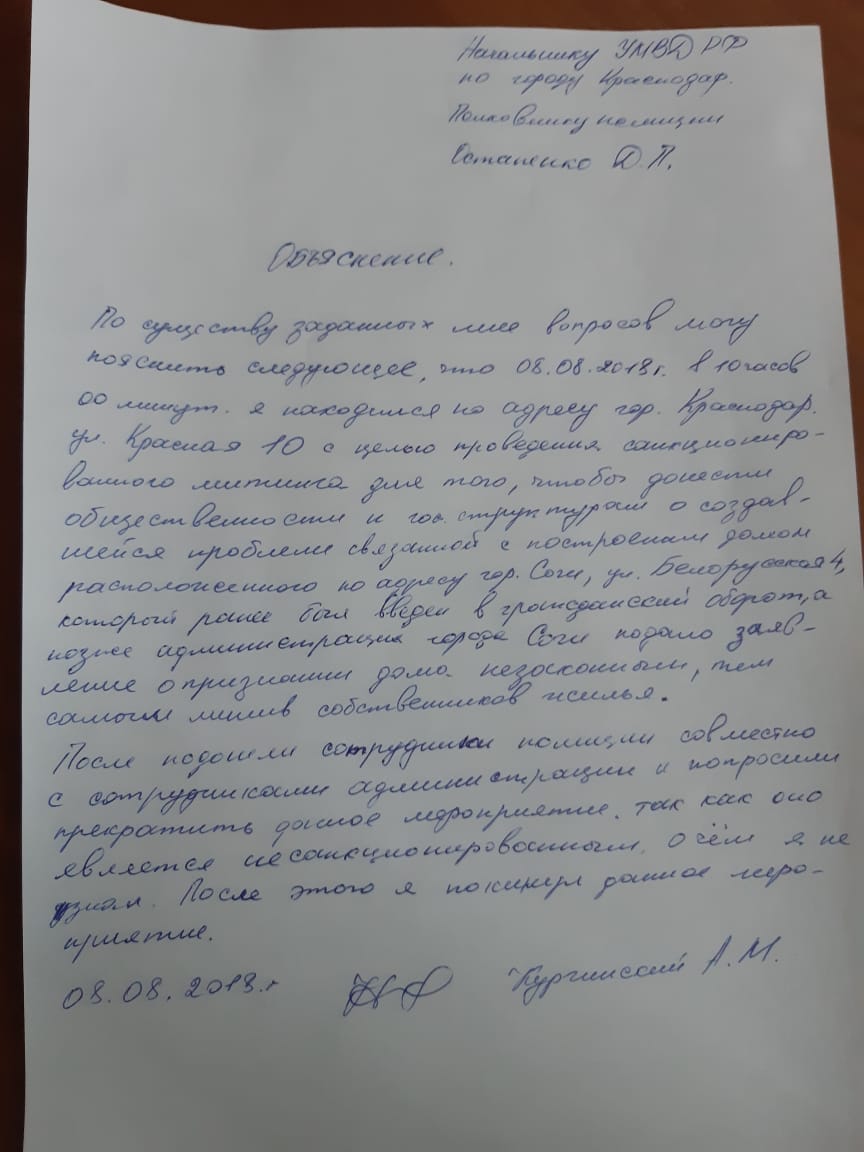 Начальнику УМВД РФ
по городу Краснодар.
Полковнику полиции
Остапенко Д.П.
Объяснение.
По существу заданных мне вопросов могу
пояснить следующее, что 08.08.2019г. в 10 часов
00 минут. я находился по адресу гор. Краснодар.
ул. Красная 10 с целью проведения санкциониро-
ванного митинга для того, чтобы донести
общественности и гос. структурам о создав-
шейся проблеме связанной с построеным домом
расположенного по адресу гор. Сочи, ул. Белорусская 4,
который ранее был введен в гражданский оборот, а
позже администрация города Сочи подало заяв-
ление о признании дома незаконным, тем
самым лишив собственников жилья.
После подошли сотрудники полиции совместно
с сотрудниками администрации и попросили
прекратить данное мероприятие. так как оно
является несанкционированным, о чём я не
узнал. После этого я покинул данное меро-
приятие.
08.08.2019.г Кургинский А.М.